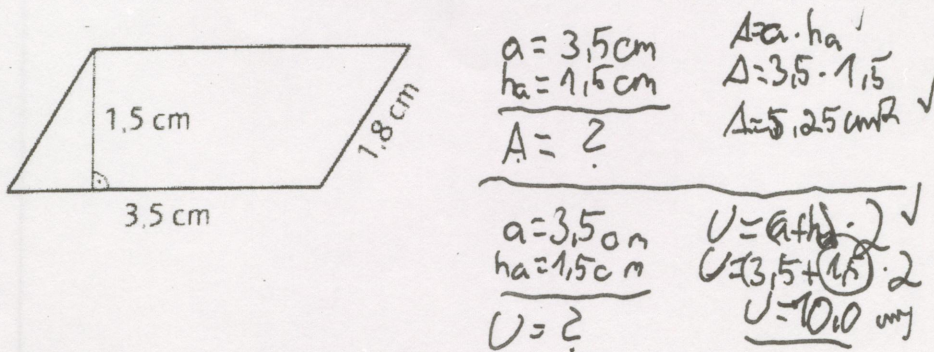 1,5 cm
1,8 cm
3,5 cm
a = 3,5 cm
ha = 1,5 cm
A = ?
A=a·ha ✓
A=3,5·1,5
A=5,25 cm² ✓
a=3,5 cm
ha=1,5 cm
U=?
U=(a+ha)·2 ✓
U=(3,5+1,5)·2
U=10,0 cm